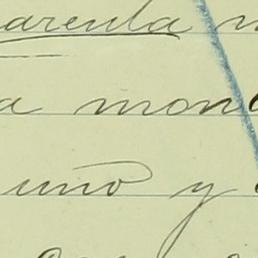 arenta
a mon
uno y